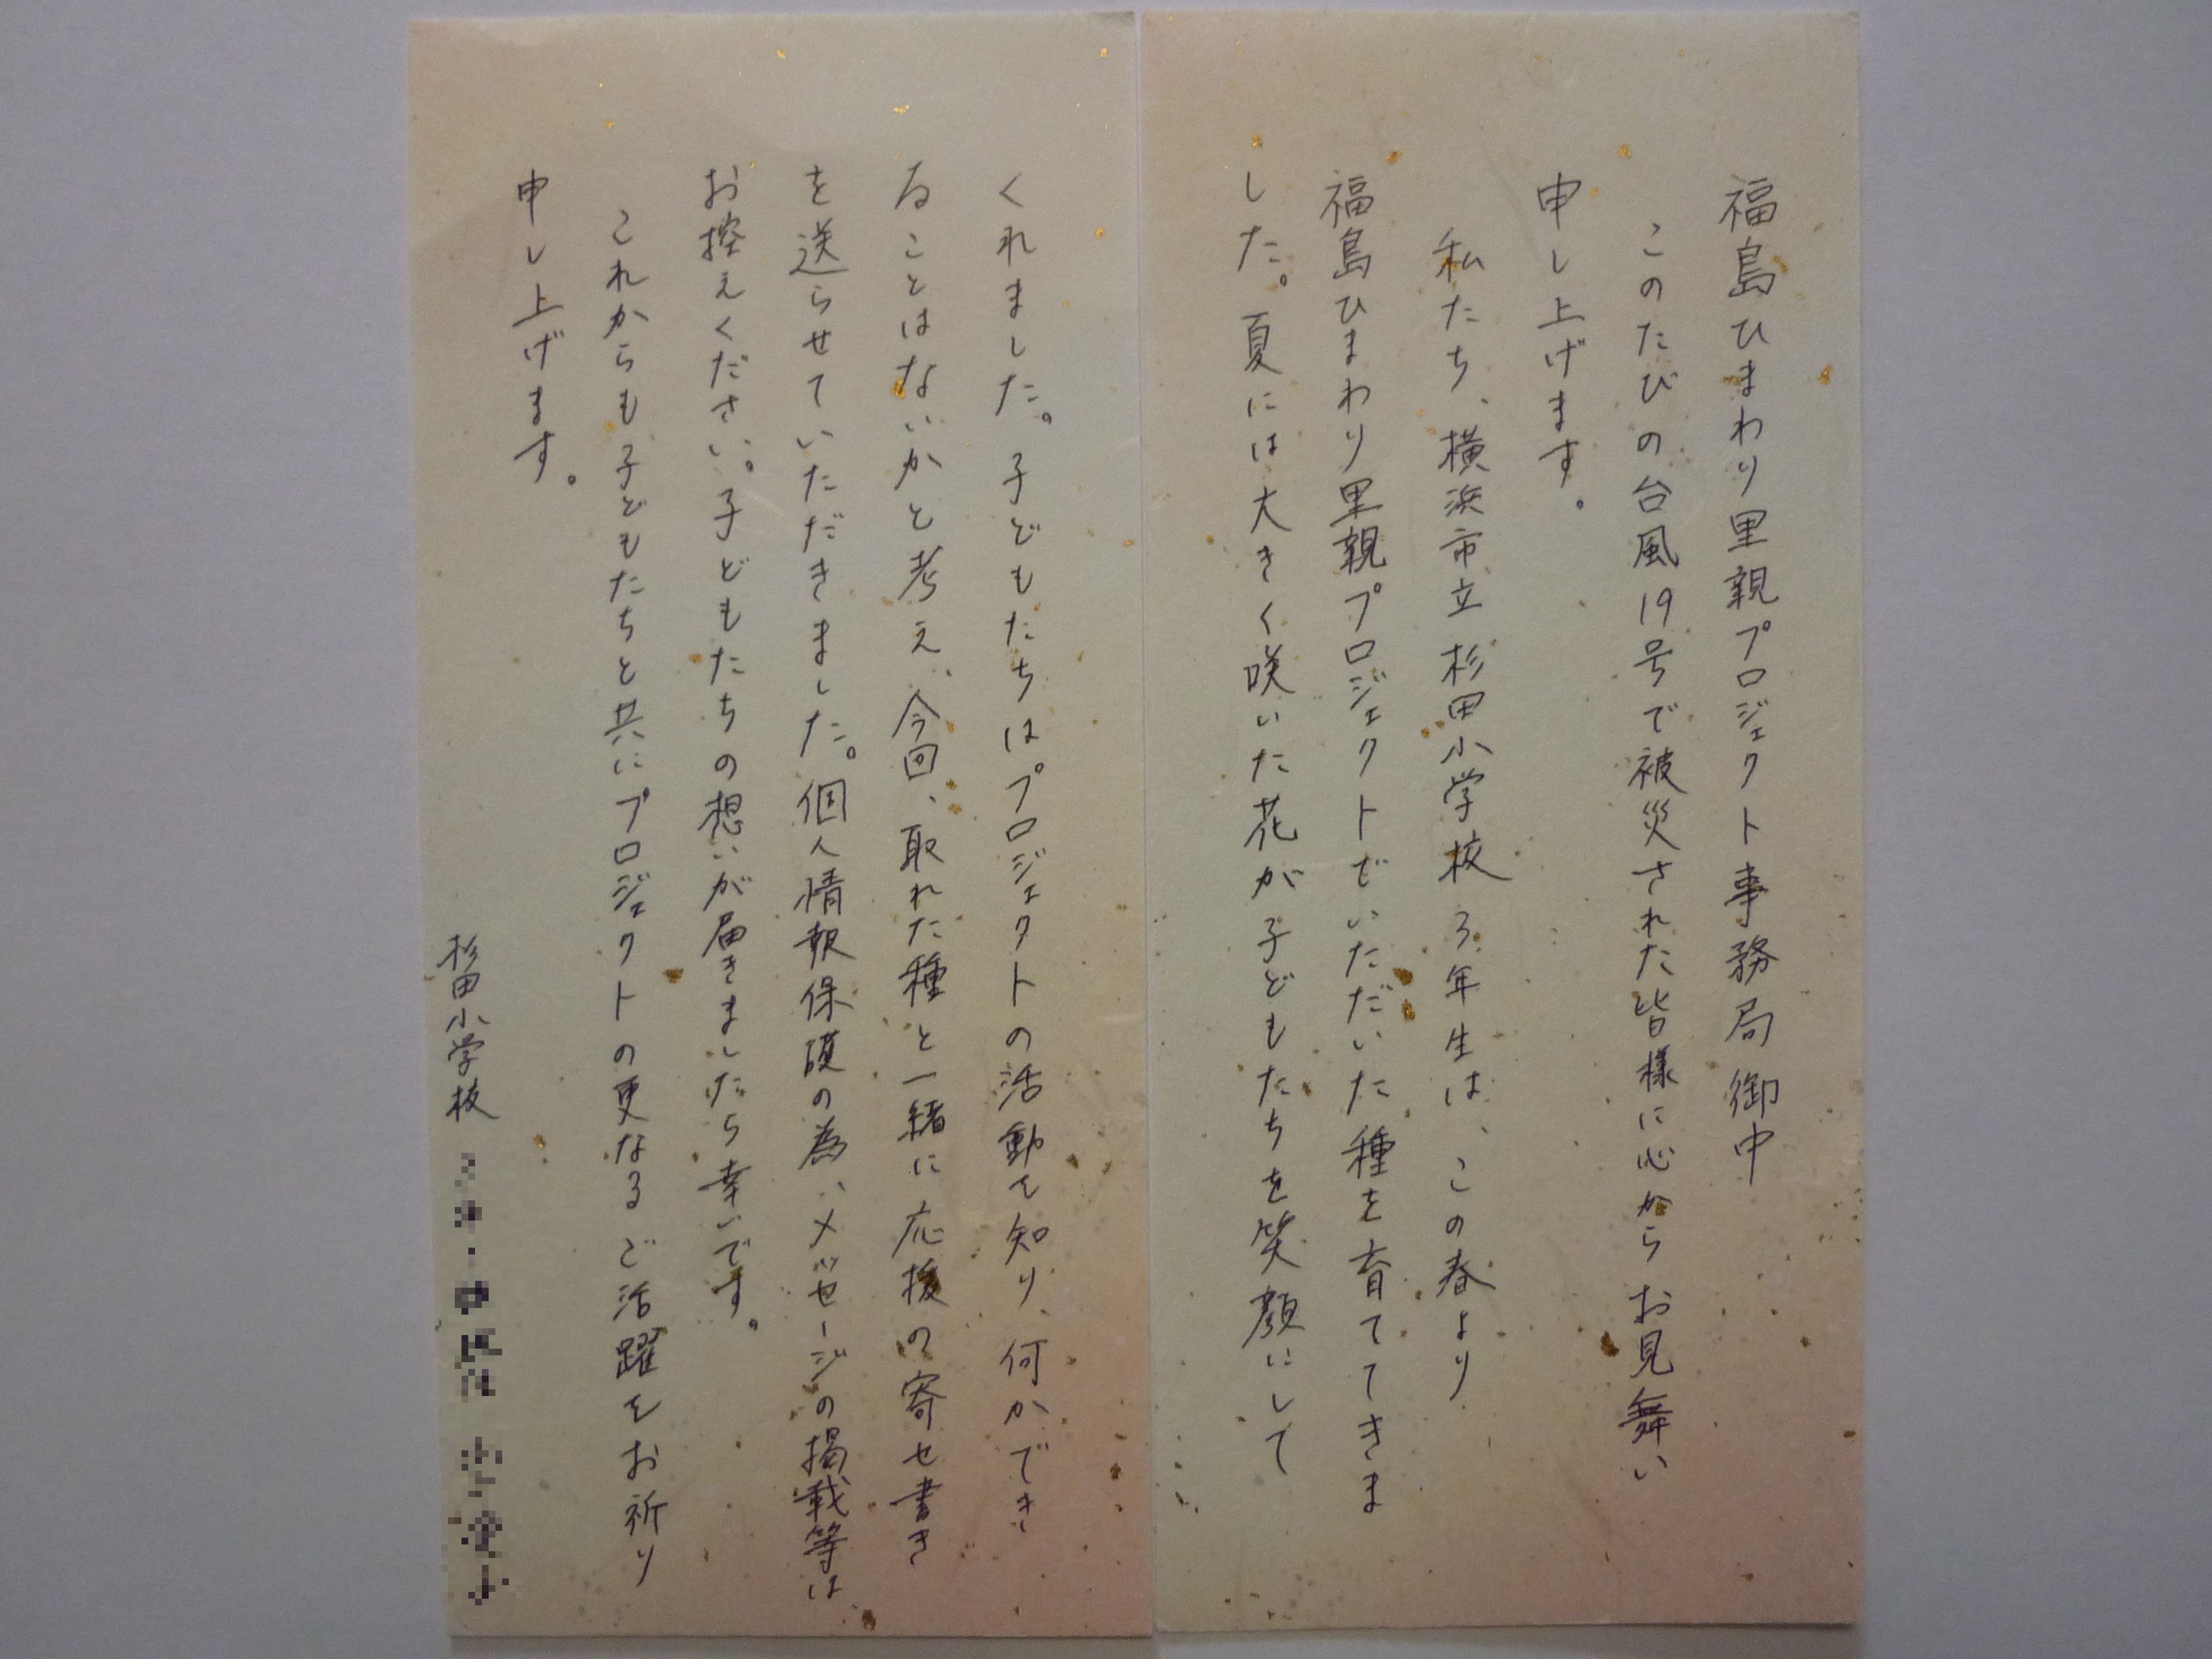 福島ひまわり里親プロジェクト事務局御中
このたびの台風19号で被災された皆様に心からお見舞い
申し上げます。
私たち、横浜市立杉田小学校3年生は、この春より
福島ひまわり里親プロジェクトでいただいた種を育ててきま
した。夏には大きく咲いた花が子どもたちを笑顔にして
くれました。子どもたちはプロジェクトの活動を知り、何かでき
ることはないかと考え、今回、取れた種と一緒に応援の寄せ書き
を送らせていただきました。個人情報保護の為、メッセージの掲載等は
お控えください。子どもたちの想いが届きましたら幸いです。
これからも子どもたちと共にプロジェクトの更なるご活躍をお祈り
申し上げます。
杉田小学校